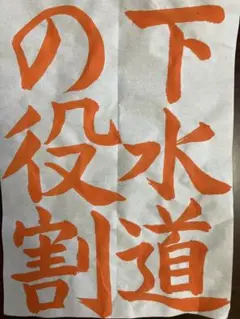 下水道
の役割